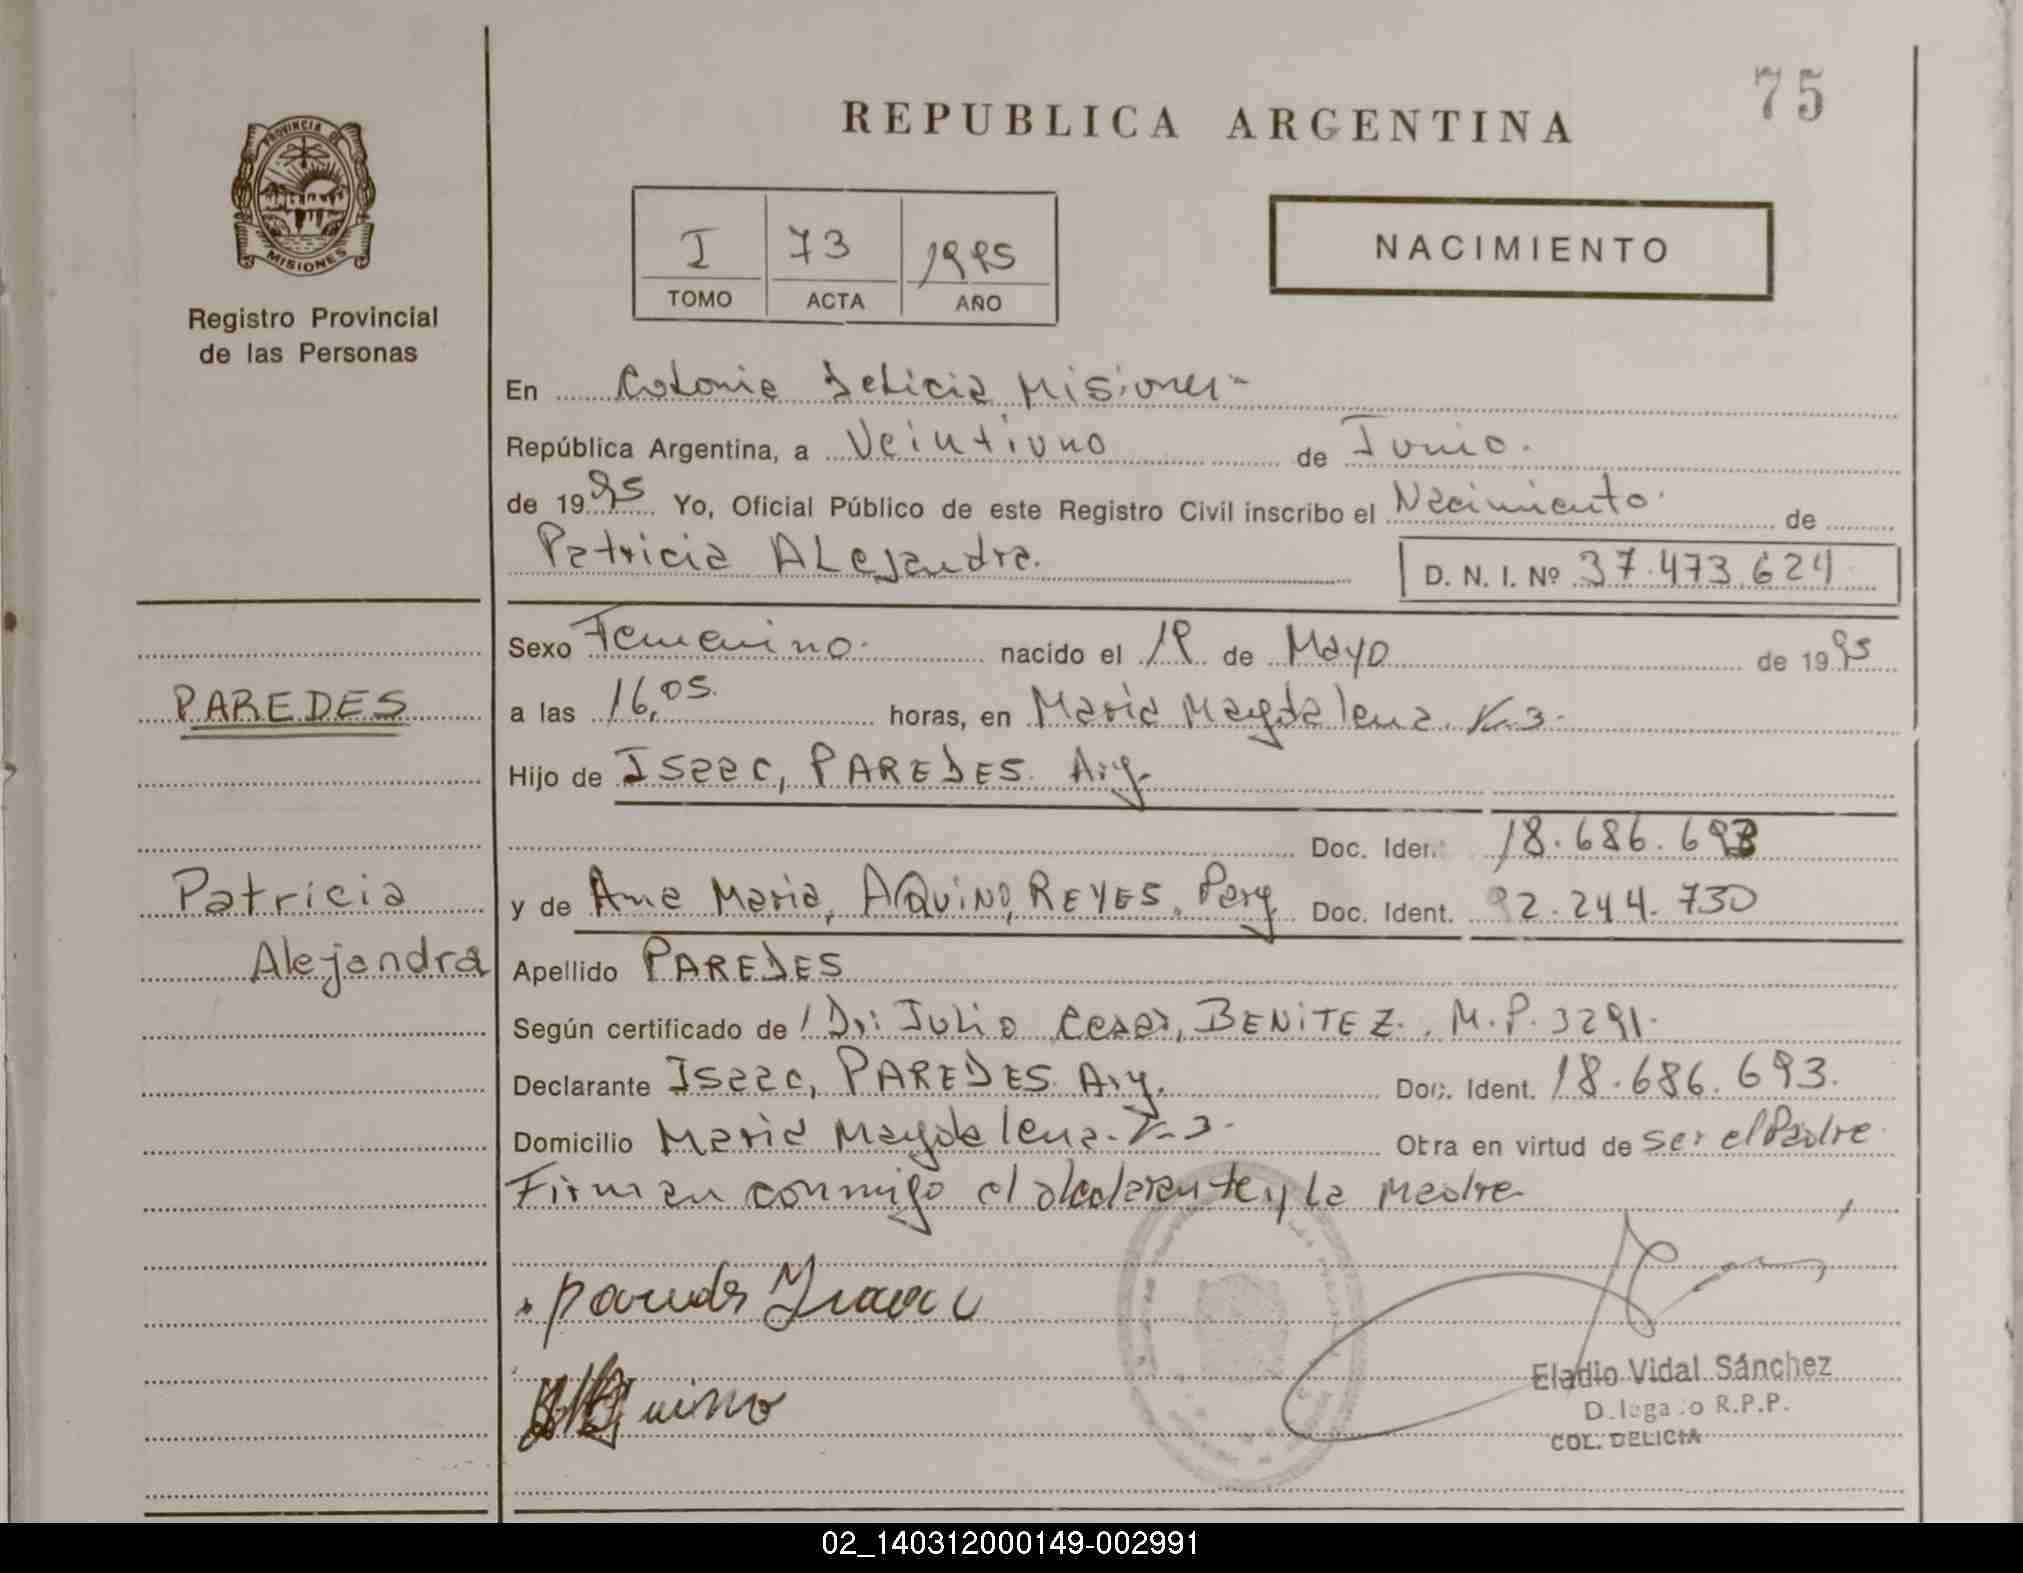 75
REPUBLICA ARGENTINA
PROVINCIA DE
MISIONES
Registro Provincial
de las Personas
I 73 1995
TOMO ACTA AÑO
NACIMIENTO
En Colonia Delicia Misiones-
República Argentina, a Veintiuno de Junio.
de 1995 Yo, Oficial Público de este Registro Civil inscribo el Nacimiento de
Patricia ALejandra. D. N. I. Nº 37.473.624
Sexo Femenino. nacido el 19 de Mayo de 1995
PAREDES
a las 16,05. horas, en Maria Magdalena. K-3-
Hijo de Isaac, PAREDES. Arg.
Doc. Iden. 18.686.693
Patricia
y de Ana Maria, AQUiNO, REYES. Parg Doc. Ident. 92.244.730
Alejandra
Apellido PAREDES
Según certificado de Dr: Julio Cesar, BENiTEZ. M.P. 3291.
Declarante Isaac, PAREDES. Arg. Doc. Ident. 18.686.693.
Domicilio Maria Magdalena-K-3- Otra en virtud de ser el Padre
Firman conmigo el declarante y La Madre
Paredes Isaac
Aquino
Eladio Vidal Sánchez
Delegado R.P.P.
COL. DELICIA
02_140312000149-002991